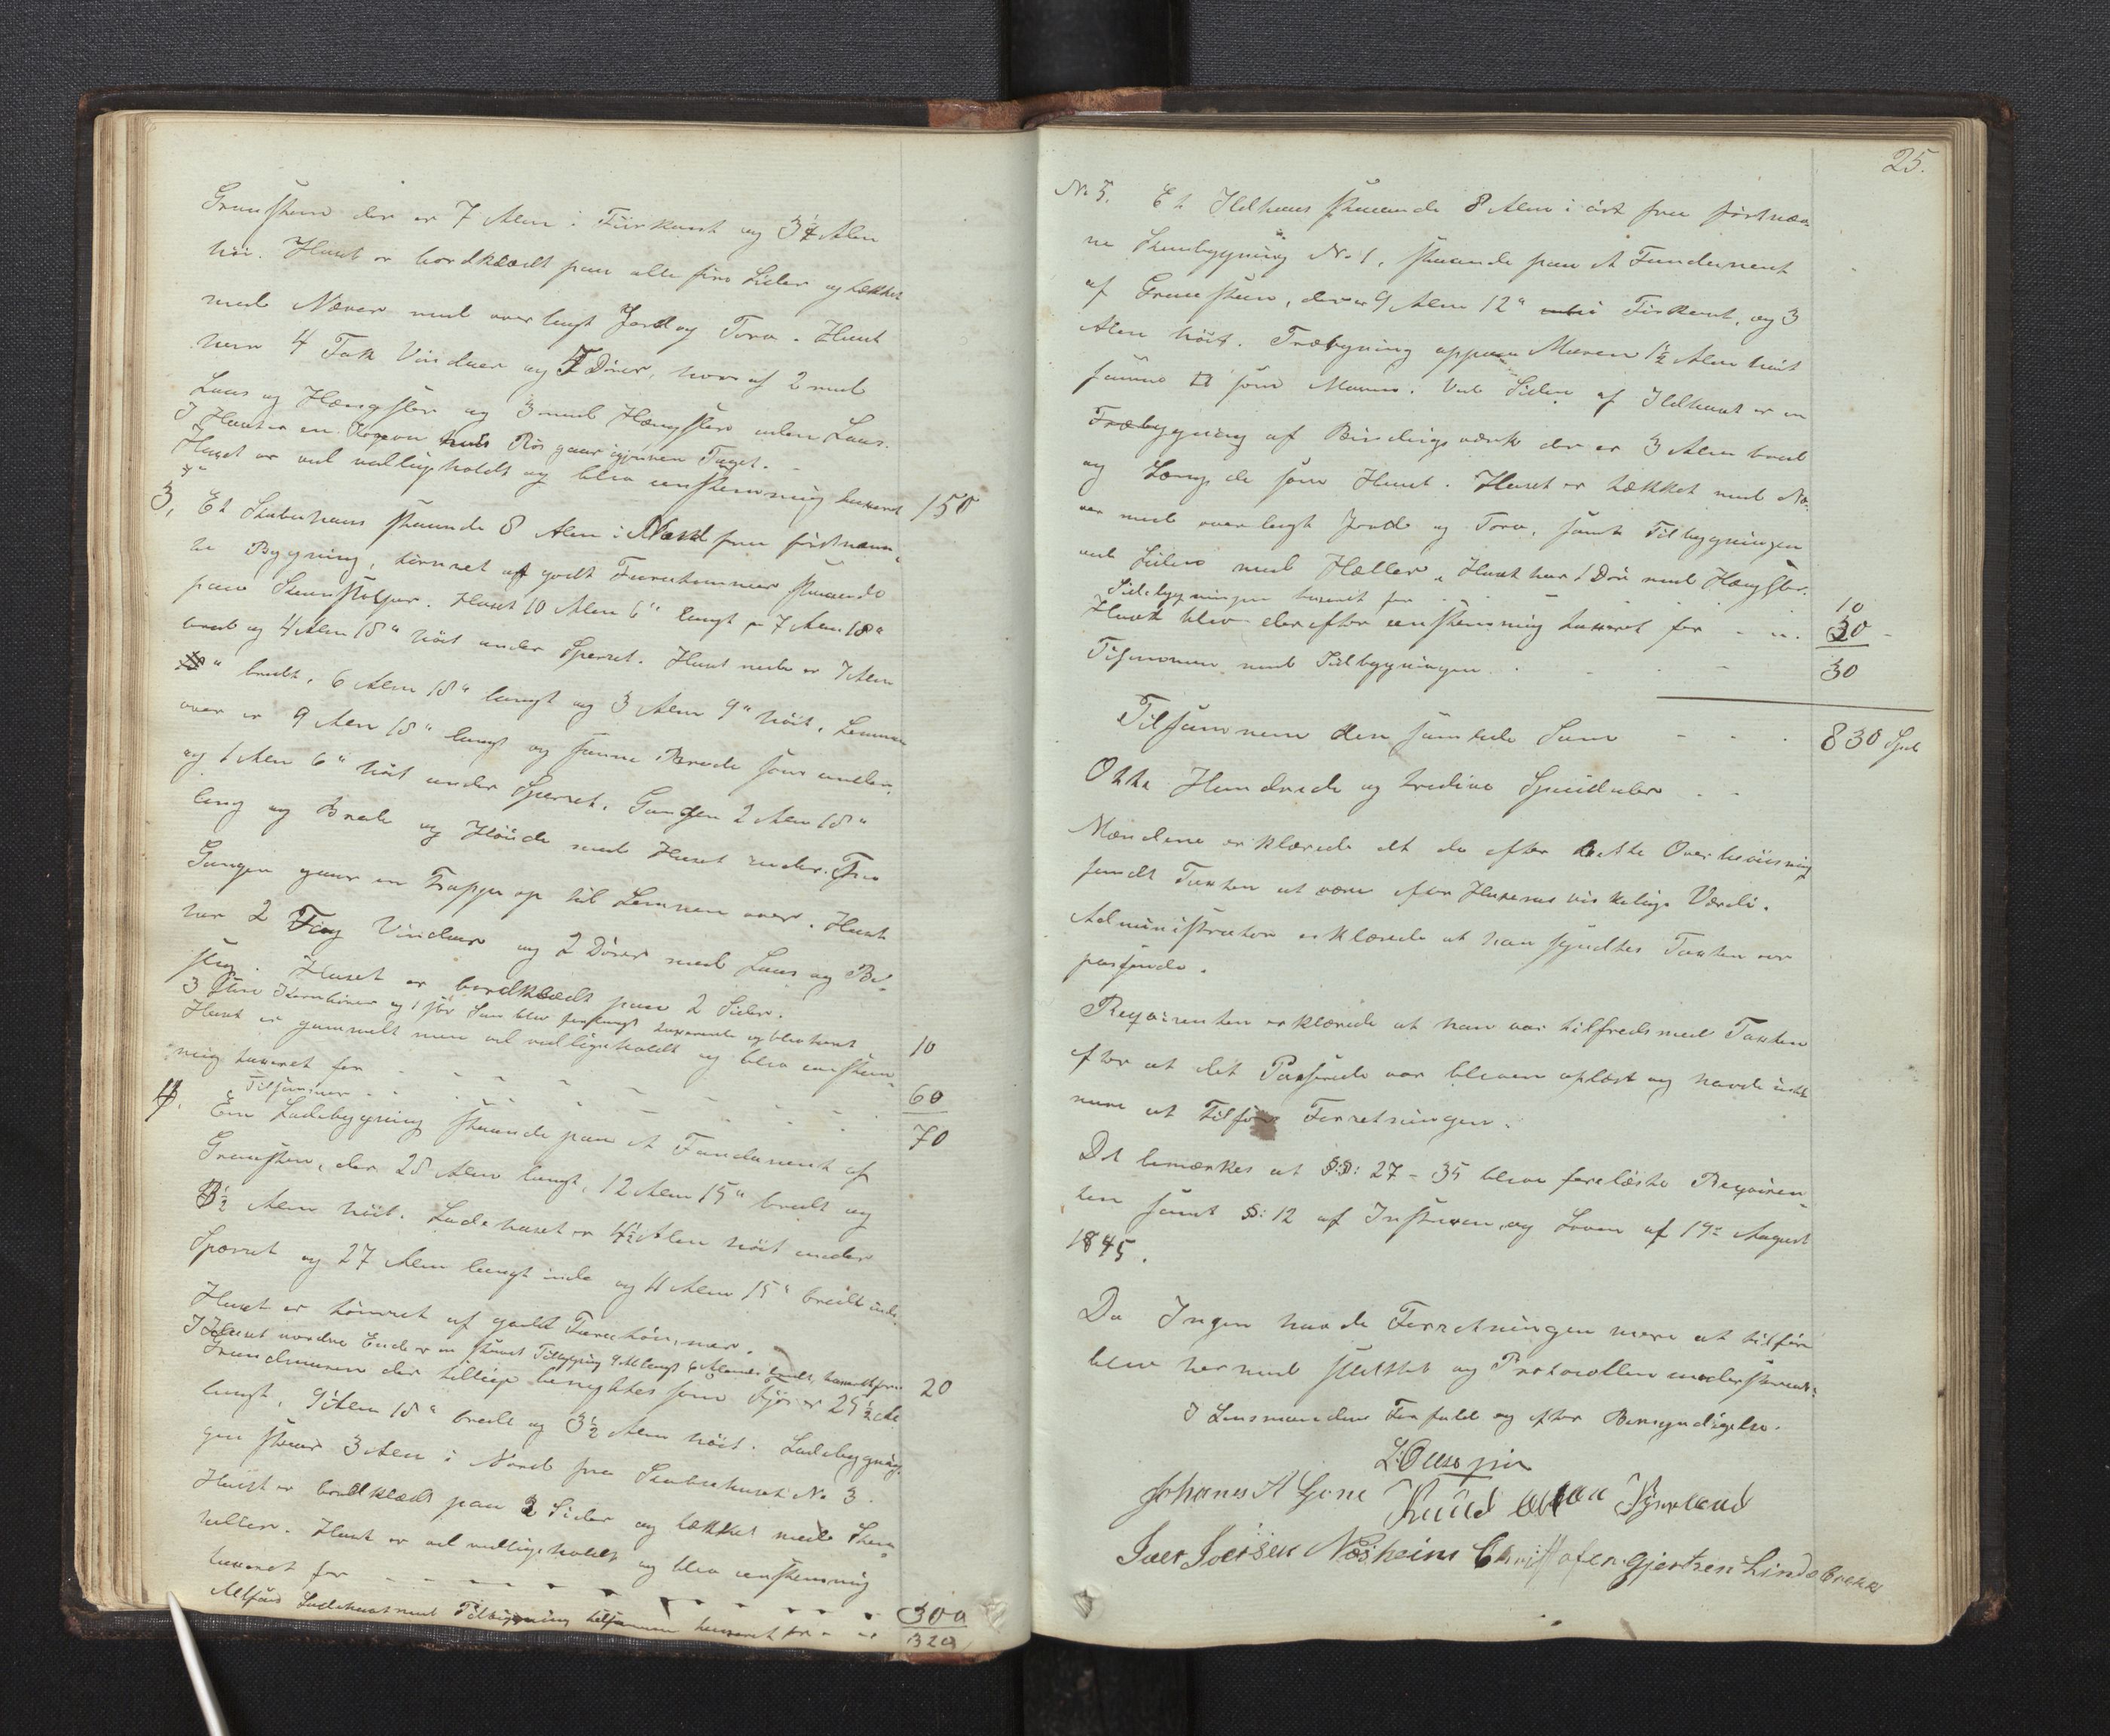 Graasteen der er 7 Alen i Fiirkant og 3¼ Alen
høi. Huset er bordklædt paa alle fire Sider og tækket
med Næver med overlagt Jord og Torv. Huset
har 4 Fak Vinduer og 5 Dører, hvoraf 2 med
Laas og Hængsler og 3 med Hængsler uden Laas.
I Huset er en Kogeovn hvis Rør gaar igjennem Taget.
Huset er vel vedligeholdt og blev enstemmig taxeret 150
3, Et Staburhuus staaende 8 Alen i Nord fra førstnævn-
te Bygning, tømret af godt Furutømmer staaende
paa Steenstolper. Huset 10 Alen 6" langt 7 Alen 18"
bredt og 4 Alen 18" høit under Sperret. Huset nede er 7 Alen
" bredt, 6 Alen 18" langt og 3 Alen 9" høit, Lemmen
over er 9 Alen 18" langt og samme Brede som under,
og 1 Alen 6" høit under Sperret. Gangen 2 Alen 18"
lang og Brede og Høide med Huset under. Fra
Gangen gaar en Trappe op til Lemmen over. Huset
har 2 Fag Vinduer og 2 Dører med Laas og Be-
slag. Huset er bordklædt paa 2 Sider.
3 store Kornbører og 1 for blev taxerede og blev 10
Huset er gammelt men vel vedligeholdt og blev enstem-
mig taxeret for 60
Tilsammen 70
4. Een Ladebygning staaende paa et Fundament af
Graasteen, der 28 Alen langt, 12 Alen 15" bredt og
3½ Alen høit. Ladehuset er 4½ Alen høit under
Sperret og 27 Alen langt inde og 11 Alen 15" bredt inde.
Huset er tømret af godt Furutømmer.
I Huset nordre Ende er en Tilbygning 9 Al langt 6 Alen bredt, taxeret for 20
Grundmuren der tillige benyttes som Fjøs er 25½ Al
langt, 9 Alen 18" bredt og 3½ Alen høit. Ladebygnin-
gen staar 3 Alen i Nord fra Staburhuset No 3.
Huset er bordklædt paa 2 Sider og tækket med Steen-
heller. Huset er vel vedligeholdt og blev enstemmig
taxeret for 300
Altsaa Ladehuset med Tilbygning tilsammen taxeret for 320
25.
No 5. Et Ildhuus staaende 8 Alen i øst fra førstnæv-
ne Steenbygning No 1, staaende paa et Fundament
af Graasteen, der er 9 Alen 12" i Firkant, og 3
Alen høit. Træbygning oppaa Muren 1½ Alen høit
samme som Muren. Ved Siden af Ildhuset er en
Træbygning af Bindingsværk der er 3 Alen bred
og Længde som Huset. Huset er tækket med Næ-
ver med overlagt Jord og Torv, samt Tilbygningen
ved Siden med Heller. Huset har 1 Dør med Hængsler.
Sidebygningen taxeret for 10
Huset blev derefter enstemmig taxeret for 20
Tilsammen med Sidebygningen 30
Tilsammen den samlede Sum 830 Spd
Otte Hundrede og tredive Speciedaler
Mændene erklærede at de efter bedste Overbeviisning
fandt Taxten at være efter Husenes virkelige Værdi.
Administrator erklærede at han syndtes Taxten var
passende.
Reqvirenten erklærede at han var tilfreds med Taxten
efter at det Passerede var bleven oplæst og havde intet
mere at tilføre Forretningen.
Det bemærkes at §§: 27 - 35 bleve forelæste Reqviren-
ten samt §: 12 af Instruxen og Loven af 19de August
1845.
Da Ingen havde Forretningen mere at tilføre
blev hermed sluttet og Protocollen underskrevet:
I Lensmandens Forfald og efter Bemyndigelse.
Johannes A Gjone Knud
Iver Iversen Næsheim Christofer Gjertsen Lindebrekke